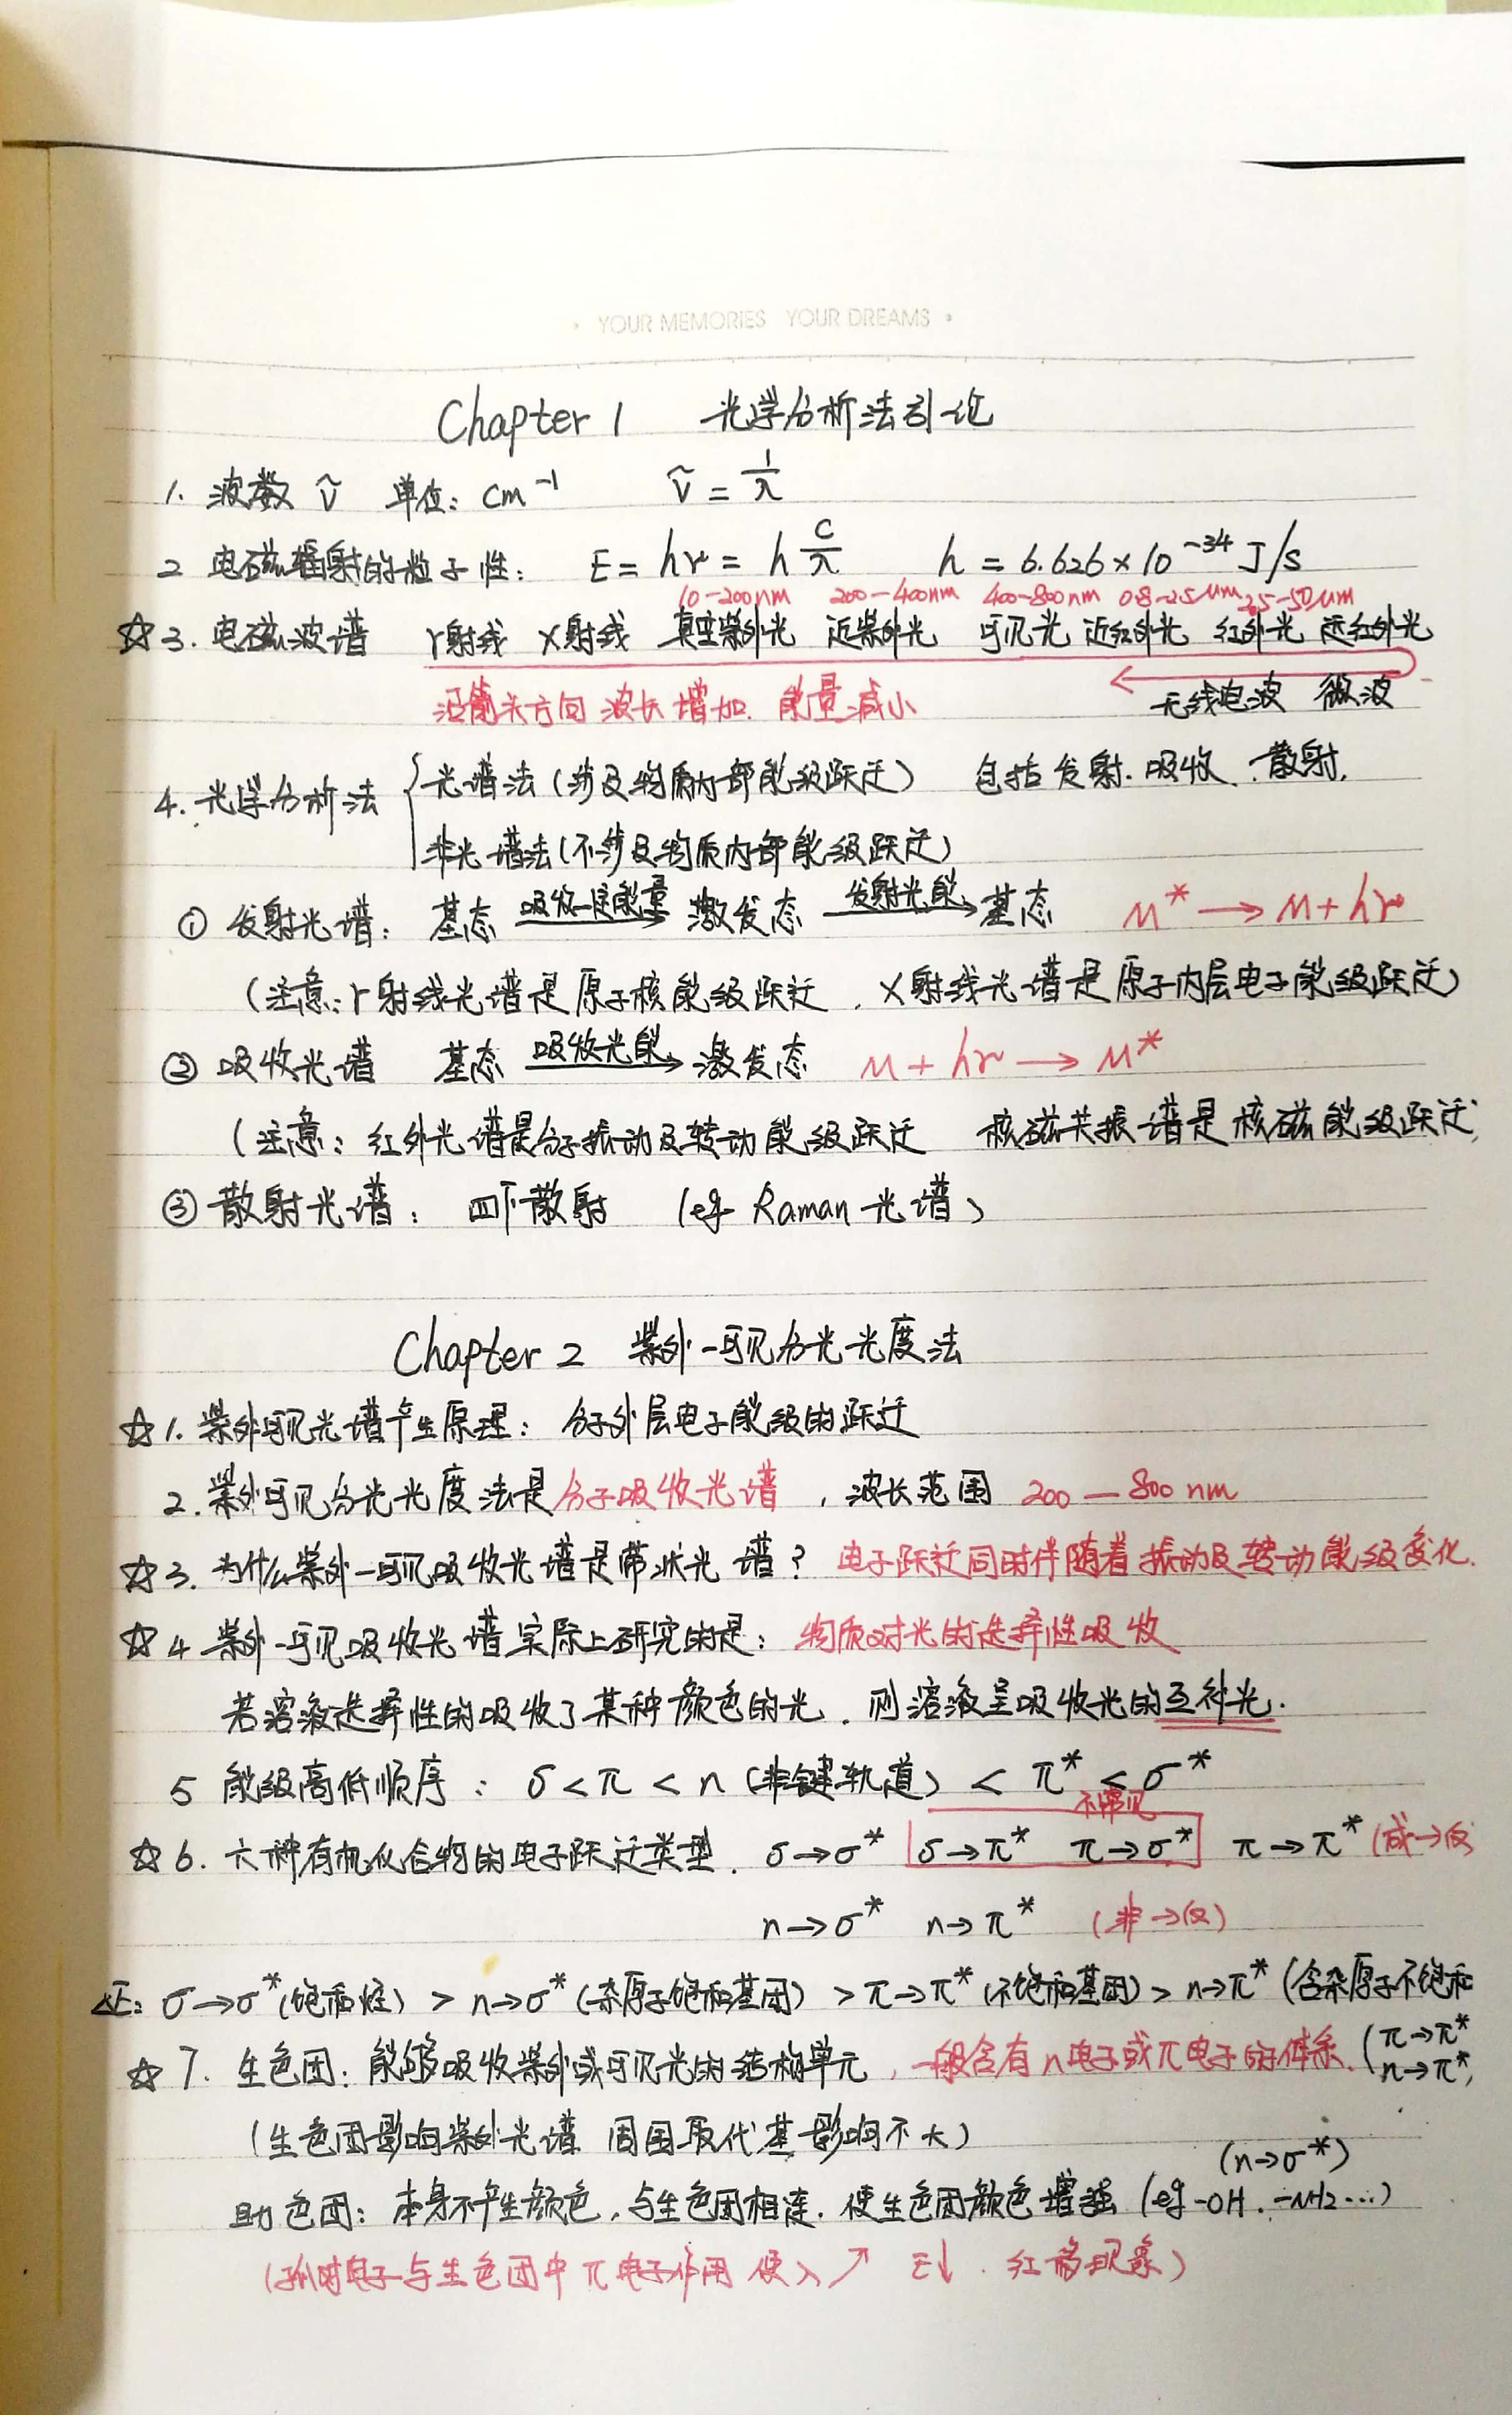 · YOUR MEMORIES YOUR DREAMS ·
Chapter 1 光学分析法引论
1. 波数 ṽ 单位: cm⁻¹ ṽ = 1/λ
2 电磁辐射的粒子性: E = hν = h c/λ h = 6.626×10⁻³⁴ J/s
10-200nm 200-400nm 400-800nm 0.8-2.5μm 2.5-50μm
☆3. 电磁波谱 γ射线 X射线 真空紫外光 近紫外光 可见光 近红外光 红外光 远红外光
沿箭头方向 波长增加. 能量减小 无线电波 微波
4. 光学分析法 { 光谱法 (涉及物质内部能级跃迁) 包括发射. 吸收. 散射.
非光谱法 (不涉及物质内部能级跃迁)
① 发射光谱: 基态 吸收一定能量→ 激发态 发射光能→ 基态 M* → M + hν
(注意: γ射线光谱是原子核能级跃迁, X射线光谱是原子内层电子能级跃迁)
② 吸收光谱 基态 吸收光能→ 激发态 M + hν → M*
(注意: 红外光谱是分子振动及转动能级跃迁 核磁共振谱是核磁能级跃迁
③ 散射光谱: 散射 (eg Raman 光谱)
Chapter 2 紫外-可见分光光度法
☆1. 紫外可见光谱产生原理: 分子外层电子能级的跃迁
2. 紫外可见分光光度法是分子吸收光谱, 波长范围 200—800 nm
☆3. 为什么紫外-可见吸收光谱是带状光谱? 电子跃迁同时伴随着振动及转动能级变化.
☆4 紫外-可见吸收光谱实际上研究的是: 物质对光的选择性吸收
若溶液选择性的吸收了某种颜色的光. 则溶液呈吸收光的互补光.
5 能级高低顺序: σ < π < n (非键轨道) < π* < σ*
不常见
☆6. 六种有机化合物的电子跃迁类型. σ→σ* σ→π* π→σ* π→π* (成→反
n→σ* n→π* (非→反)
△E: σ→σ* (饱和烃) > n→σ* (杂原子饱和基团) > π→π* (不饱和基团) > n→π* (含杂原子不饱和
☆7. 生色团: 能够吸收紫外或可见光的结构单元, 一般含有n电子或π电子的体系. (π→π*
n→π*)
(生色团影响紫外光谱 周围取代基影响不大)
(n→σ*)
助色团: 本身不产生颜色, 与生色团相连. 使生色团颜色增强 (eg -OH. -NH2...)
(孤对电子与生色团中π电子作用 使λ↗ E↓. 红移现象)